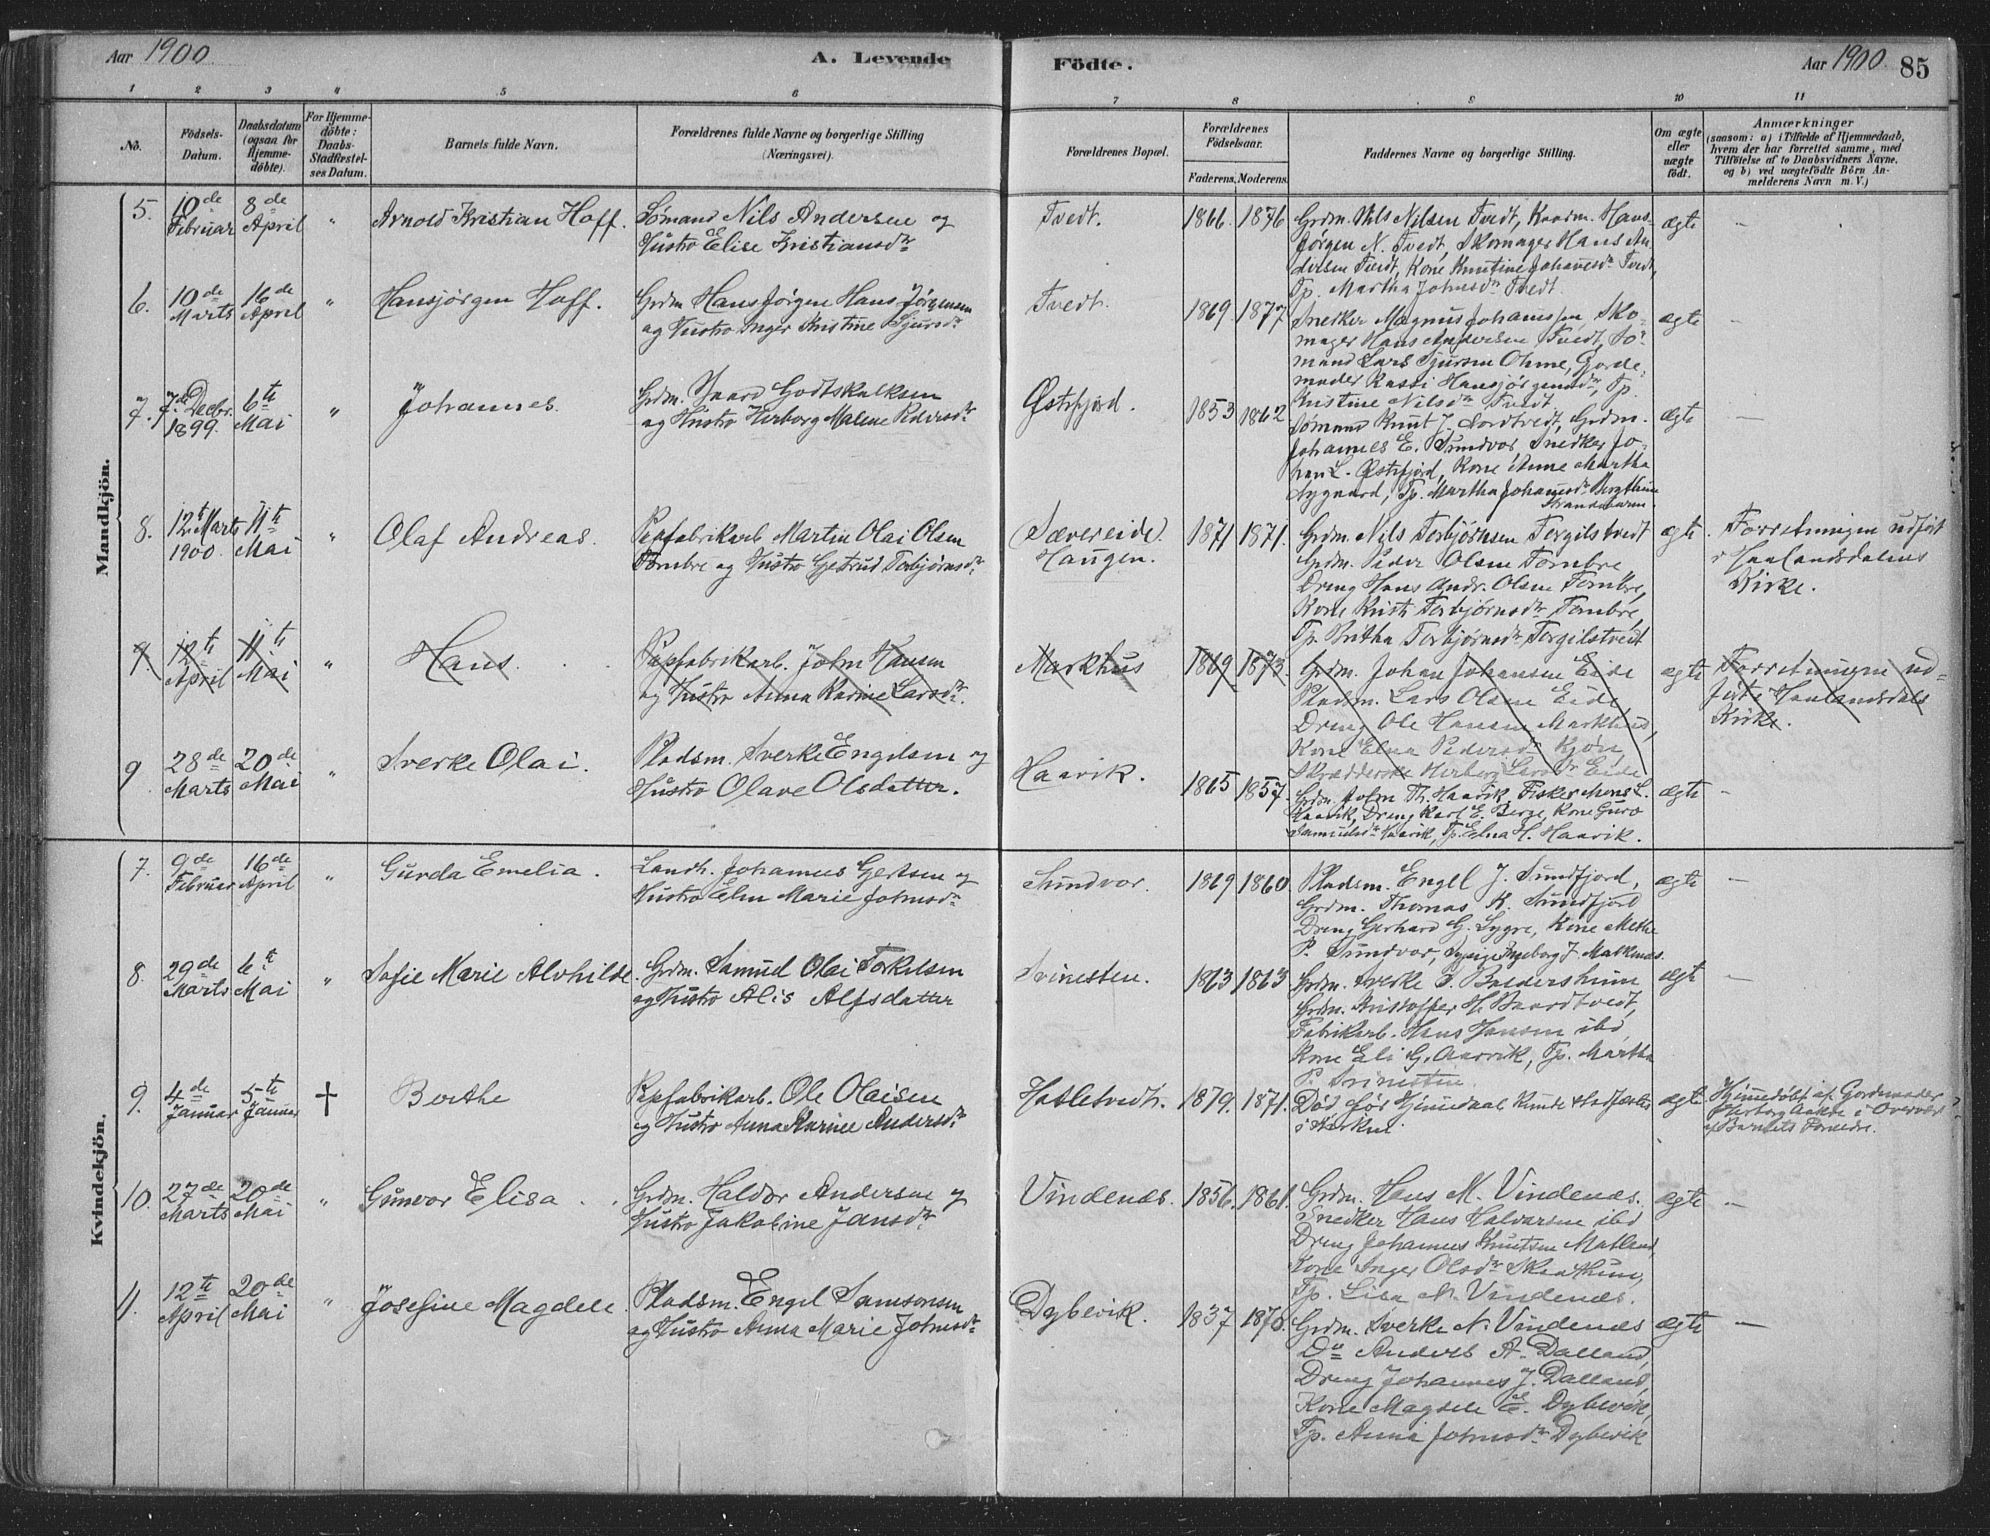 Aar 1900
A. Levende Födte.
Aar 1900 85
1 2 3 4 5 6 7 8 9 10 11
No.
Födsels-Datum.
Daabsdatum (ogsaa for Hjemme-döbte).
For Hjemme-döbte: Daabs-Stadfæstel-ses Datum.
Barnets fulde Navn.
Forældrenes fulde Navne og borgerlige Stilling
(Næringsvei).
Forældrenes Bopæl.
Forældrenes Födselsaar.
Faderens. Moderens.
Faddernes Navne og borgerlige Stilling.
Om ægte eller uægte födt.
Anmærkninger
(saasom: a) i Tilfælde af Hjemmedaab,
hvem der har forrettet samme, med
Tilföielse af to Daabsvidners Navne,
og b) ved uægtefödte Börn An-
melderens Navn m. V.)
Mandkjön.
5. 10de Februar 8de April " Arnold Kristian Hoff. Sømand Nils Andersen og
Hustro Elise Kristiansdr
Tvedt. 1866. 1876
Grdm. Nils Nilsen Tvedt, Kaarm. Hans
Jørgen N. Tvedt, Skomager Hans An-
dersen Tvedt, Kone Knutine Johannesdr Tvedt,
Tp. Martha Johnsdr Tvedt.
ægte —
6. 10de Marts 16de April " Hansjørgen Hoff. Grdm Hans Jørgen Hans Jørgensen
og Hustro Inger Kristine Sjursdr
Tvedt. 1869. 1877
Snedker Magnus Johannssen, Sko-
mager Hans Andersen Tvedt, Sø-
mand Lars Sjursen Ohme, Gjorde-
moder Rasti Hansjørgensdr, Tp.
Kristine Nilsdr Tvedt.
ægte —
7. 7de Decbr. 1899. 6te Mai " Johannes. Grdm. Ivard Godtskalksen
og Hustro Herborg Malene Pedersdr
Østrfjord. 1853 1862
Sømand Knut J. Nordtvedt, Grdm.
Johannes E. Sundvor, Snedker Jo-
han L. Østrfjord, Kone Anne Martha
Nygaard, Tp. Martha Johannesdr Bergthun
Strandebarm.
ægte —
8. 12te Marts 1900. 11te Mai " Olaf Andreas. Papfabrikarb. Martin Olai Olsen
Tombre og Hustro Getrud Torbjørnsdr
Sævereide Haugen. 1871 1871.
Grdm. Nils Torbjørnsen Torgilstvedt
Grdm. Peder Olsen Tombre
Dreng Hans Andr. Olsen Tombre,
Kone Kristi Torbjørnsdr Tombre,
Tp. Britha Torbjørnsdr Torgilstvedt
ægte. Forretningen udført
i Haalandsdalens
Kirke.
9. 12te April 11te Mai " Hans. Papfabrikarb. John Hansen
og Hustro Anna Karine Larsdr.
Markhus 1869. 1873.
Grdm. Johan Johansen Eide
Pladsm. Lars Olsen Eide,
Dreng Ole Hansen Markhus,
Kone Elna Pedersdr Kjøn,
Skrædderske Herborg Larsdr Eide
ægte Forretningen ud-
ført i Haalandsdals
Kirke.
9 28de Marts 20de Mai " Sverke Olai. Pladsm. Sverke Engelsen og
Hustro Olave Olsdatter.
Haavik. 1865 1857.
Grdm. John Th. Haavik, Fisker Mons L.
Haavik, Dreng Karl E. Berge, Kone Guro
Samuelsdr Haavik, Tp. Elna H. Haavik.
ægte —
Kvindekjön.
7. 9de Februar 16de April " Gurda Emelia. Landh. Johannes Gertsen og
Hustro Elen Marie Johnsdr
Sundvor. 1869 1860
Pladsm. Engel J. Sundfjord,
Grdm. Thomas K. Sundfjord
Dreng Gerhard G. Lygre, Kone Methe
P. Sundvor, Ingeborg J. Malknæs.
ægte —
8. 29de Marts 6te Mai " Sofie Marie Alvhilde. Grdm. Samuel Olai Torkelsen
og Hustro Alis Alfsdatter
Svinesten. 1863 1863
Grdm. Sverke S. Baldershum
Grdm. Kristoffer H. Baardtvedt,
Fabrikarb. Hans Hansen ibd,
Kone Eli G. Aarvik, Tp. Martha
P. Svinesten.
ægte —
9. 4de Januar 5te Januar † Berthe Papfabrikarb. Ole Olaisen
og Hustro Anna Karine Andersdr
Hatletvedt. 1879. 1871.
Død før Hjemmedaab kunde stadfæstes
i Kirken.
ægte Hjemmedøbt af Gordemoder
Herborg Aakre i Overvær
af Barnets Forældre.
10. 27de Marts 20de Mai " Gunvor Elisa. Grdm. Haldor Andersen og
Hustro Jakobine Jansdr
Vindenæs. 1856. 1861.
Grdm. Hans M. Vindenæs.
Snedker Hans Halvorsen ibd
Dreng Johannes Knutsen Matland,
Kone Inger Olsdr Skaathun,
Tp. Lisa N. Vindenæs.
ægte —
11. 12te April 20de Mai " Josefine Magdele. Pladsm. Engel Samsonsen
og Hustro Anna Marie Johnsdr
Dybevik. 1837 1873.
Grdm. Sverke N. Vindenæs
Do Anders A. Dalland,
Dreng Johannes J. Dalland,
Kone Magdele E. Dybevik,
Tp. Anna Johnsdr Dybevik
ægte —